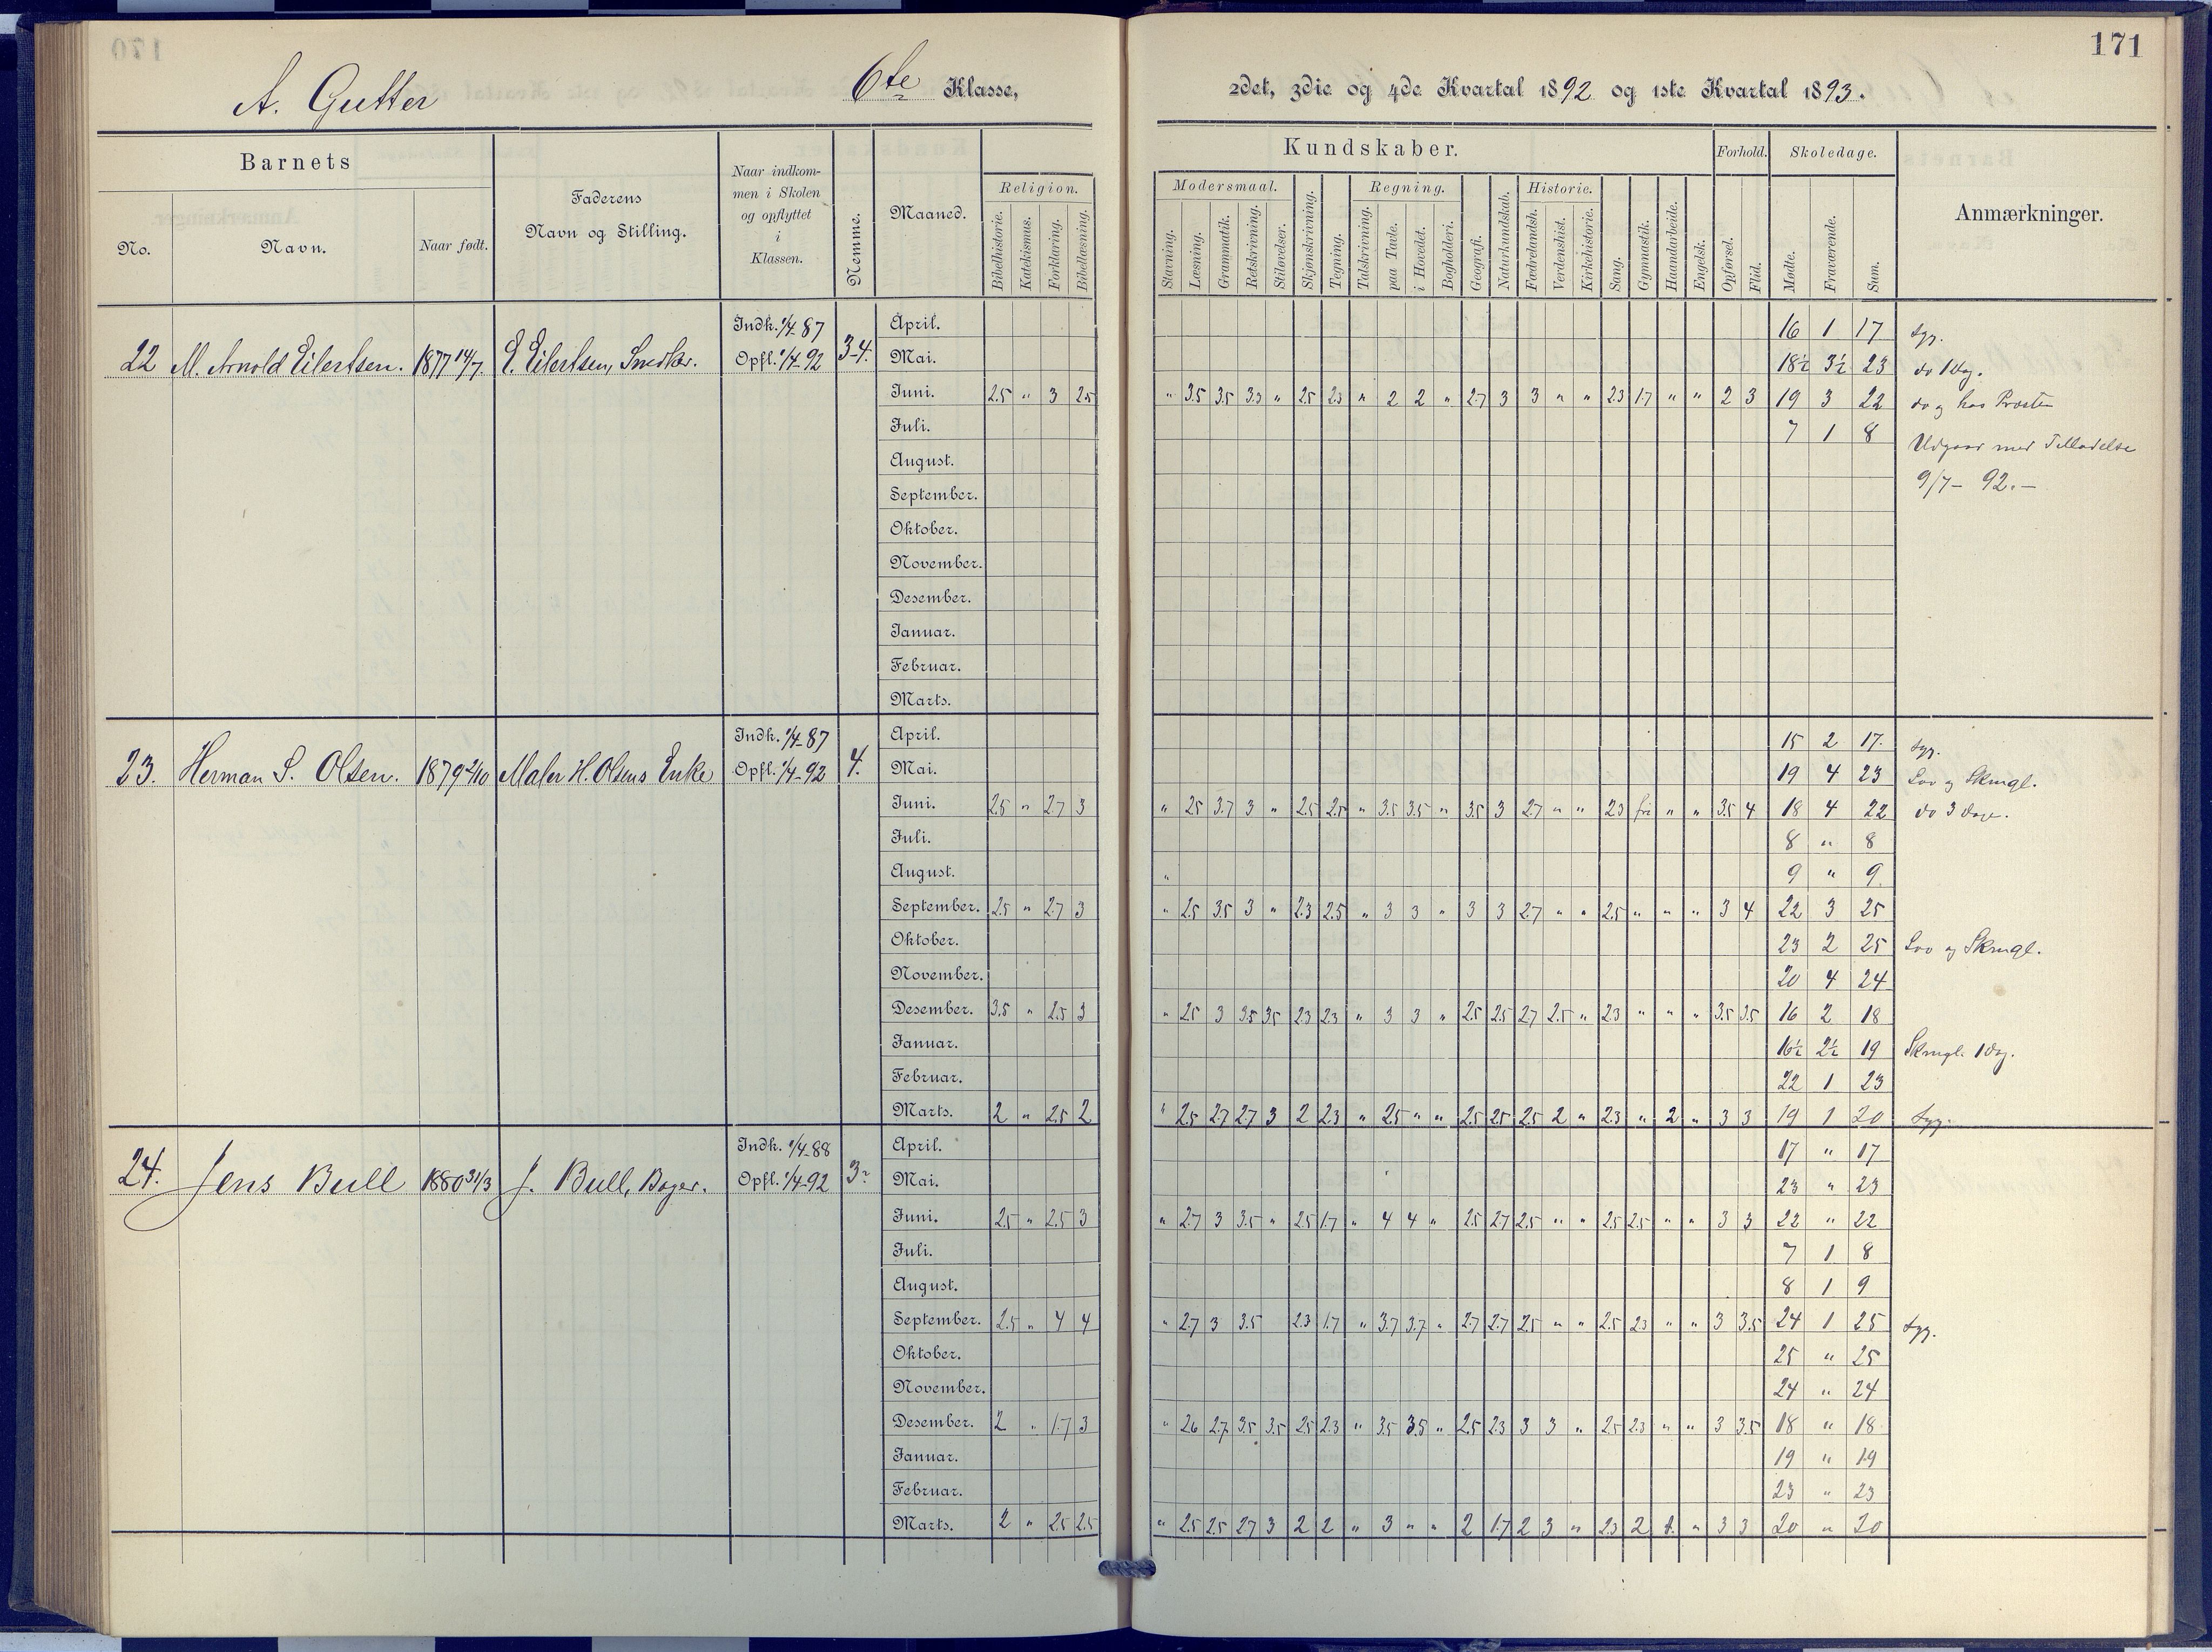 171
A. Gutter 6te Klasse, 2det, 3die og 4de Kvartal 1892 og 1ste Kvartal 1893.
Barnets
No.
Navn.
Naar født.
Faderens
Navn og Stilling.
Naar indkom-
men i Skolen
og opflyttet
i
Klassen.
Nemme.
Maaned.
Kundskaber.
Religion.
Bibelhistorie.
Katekismus.
Forklaring.
Bibellæsning.
Modersmaal.
Stavning.
Læsning.
Grammatik.
Retskrivning.
Stiløvelser.
Skjønskrivning.
Tegning.
Regning.
Talskrivning.
paa Tavle.
i Hovedet.
Bogholderi.
Geografi.
Naturkundskab.
Historie.
Fædrelandsh.
Verdenshist.
Kirkehistorie.
Sang.
Gymnastik.
Haandarbeide.
Engelsk.
Forhold.
Opførsel.
Flid.
Skoledage.
Mødte.
Fraværende.
Sum.
Anmærkninger.
22 M. Arnold Eilertsen. 1877 14/7. E. Eilertsen, Snedker. Indk. 1/4-87 Opfl. 1/4-92 3-4.
April. 16 1 17 syg.
Mai. 18½ 3½ 23 do 1 Dag.
Juni. 2.5 " 3 2.5 " 3.5 3.5 3.3 " 2.5 2.3 " 2 2 " 2.7 3 3 " " 2.3 1.7 " " 2 3 19 3 22 do og hos Provsten
Juli. 7 1 8 Udgaar med Tilladelse
August. 9/7- 92.-
September.
Oktober.
November.
Desember.
Januar.
Februar.
Marts.
23. Herman S. Olsen. 1879 2/10 Maler H. Olsens Enke Indk. 1/4-87 Opfl. 1/4-92 4.
April. 15 2 17. syg.
Mai. 19 4 23 Lov og Skmgl.
Juni. 2.5 " 2.7 3 " 2.5 3.7 3 " 2.5 2.5 " 3.5 3.5 " 3.5 3 2.7 " " 2.3 fri " " 3.5 4 18 4 22 do 3 Dage.
Juli. 8 " 8
August. " 9 " 9.
September. 2.5 " 2.7 3 " 2.5 3.5 3 " 2.3 2.5 " 3 3 " 3 3 2.7 " " 2.5 " " " 3 4 22 3 25
Oktober. 23 2 25 Lov og Skmgl.
November. 20 4 24
Desember. 3.5 " 2.5 3 " 2.5 3 3.5 3.5 2.3 2.3 " 3 3 " 2.5 2.5 2.7 2.5 " 2.3 " " " 3.5 3.5 16 2 18
Januar. 16½ 2½ 19 Skmgl. 1 Dag.
Februar. 22 1 23
Marts. 2 " 2.5 2 " 2.5 2.7 2.7 3 2 2.3 " 2.5 " " 2.5 2.5 2.5 2 " 2.3 " 2 " 3 3 19 1 20 syg.
24. Jens Bull 1880 31/3 J. Bull, Bager. Indk. 1/4-88 Opfl. 1/4-92 3
April. 17 " 17
Mai. 23 " 23
Juni. 2.5 " 2.5 3 " 2.7 3 3.5 " 2.5 1.7 " 4 4 " 2.5 2.7 2.5 " " 2.5 2.5 " " 3 3 22 " 22
Juli. 7 1 8
August. 8 1 9
September. 2.5 " 4 4 " 2.7 3 3.5 2.3 1.7 " 3.7 3.7 " 2.7 2.7 2.5 " " 2.5 2.3 " " 3 3.5 24 1 25 syg.
Oktober. 25 " 25
November. 24 " 24
Desember. 2 " 1.7 3 " 2.6 2.7 3.5 3.5 2.5 2.3 " 3.5 3.5 " 2.5 2.3 3 3 " 2.5 2.3 " " 3 3.5 18 " 18
Januar. 19 " 19
Februar. 23 " 23
Marts. 2 " 2.5 2.5 " 2.5 2.5 2.7 3 2 2 " 3 " " 2 1.7 2 3 " 2.3 2 " 3 3 20 " 20